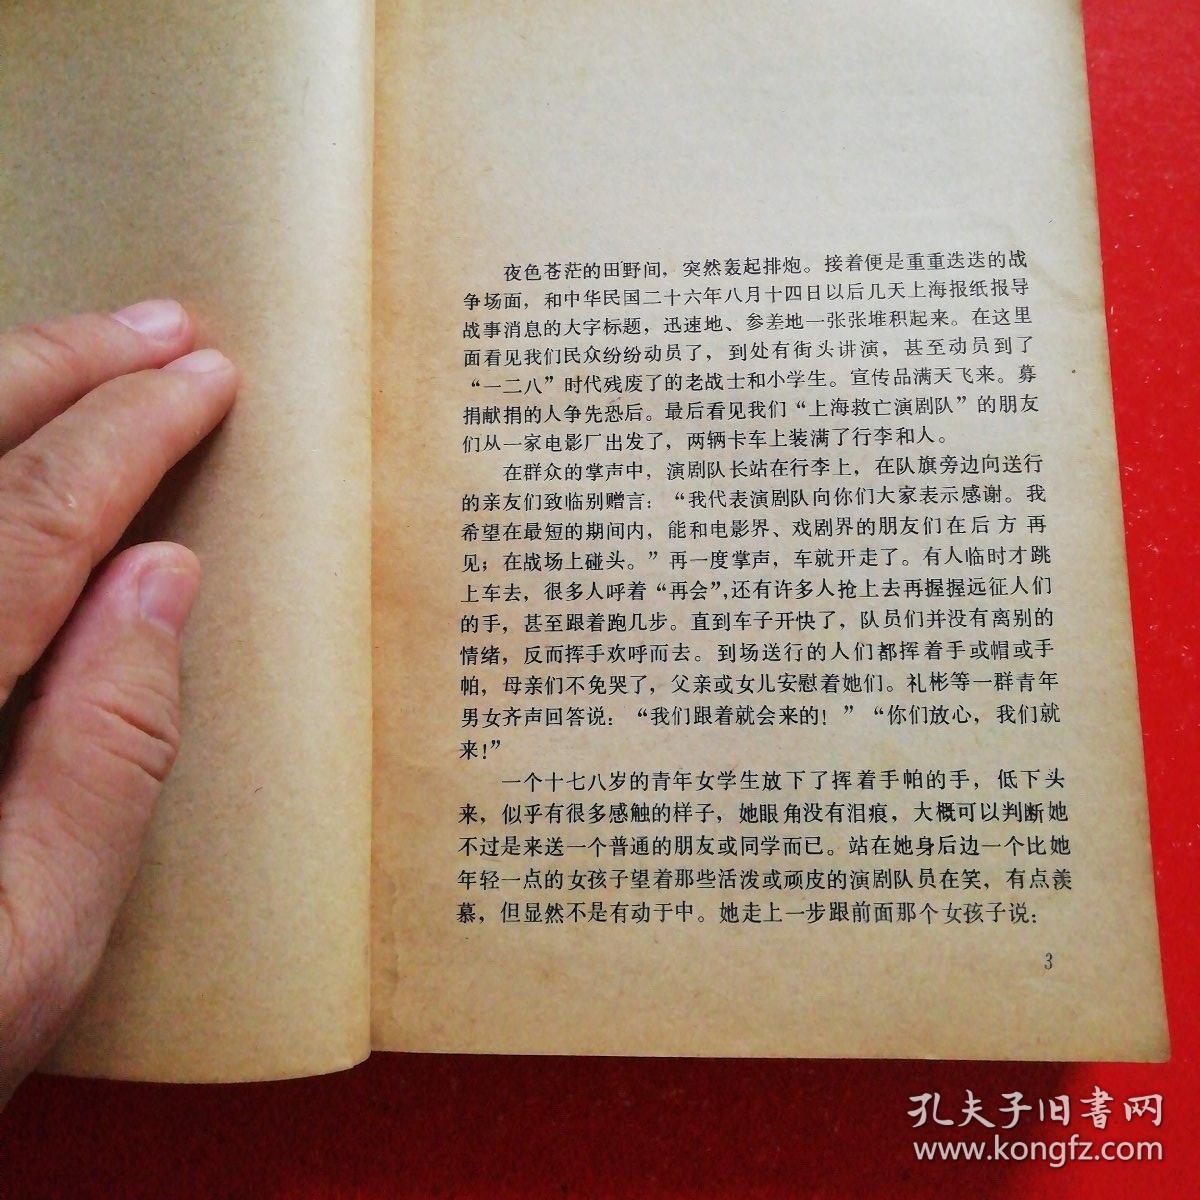 夜色苍茫的田野间，突然轰起排炮。接着便是重重迭迭的战
争场面，和中华民国二十六年八月十四日以后几天上海报纸报导
战事消息的大字标题，迅速地、参差地一张张堆积起来。在这里
面看见我们民众纷纷动员了，到处有街头讲演，甚至动员到了
“一二八”时代残废了的老战士和小学生。宣传品满天飞来。募
捐献捐的人争先恐后。最后看见我们“上海救亡演剧队”的朋友
们从一家电影厂出发了，两辆卡车上装满了行李和人。
在群众的掌声中，演剧队长站在行李上，在队旗旁边向送行
的亲友们致临别赠言：“我代表演剧队向你们大家表示感谢。我
希望在最短的期间内，能和电影界、戏剧界的朋友们在后方再
见；在战场上碰头。”再一度掌声，车就开走了。有人临时才跳
上车去，很多人呼着“再会”，还有许多人抢上去再握握远征人们
的手，甚至跟着跑几步。直到车子开快了，队员们并没有离别的
情绪，反而挥手欢呼而去。到场送行的人们都挥着手或帽或手
帕，母亲们不免哭了，父亲或女儿安慰着她们。礼彬等一群青年
男女齐声回答说：“我们跟着就会来的！”“你们放心，我们就
来！”
一个十七八岁的青年女学生放下了挥着手帕的手，低下头
来，似乎有很多感触的样子，她眼角没有泪痕，大概可以判断她
不过是来送一个普通的朋友或同学而已。站在她身后边一个比她
年轻一点的女孩子望着那些活泼或顽皮的演剧队员在笑，有点羡
慕，但显然不是有动于中。她走上一步跟前面那个女孩子说：
3
孔夫子旧書网
www.kongfz.com